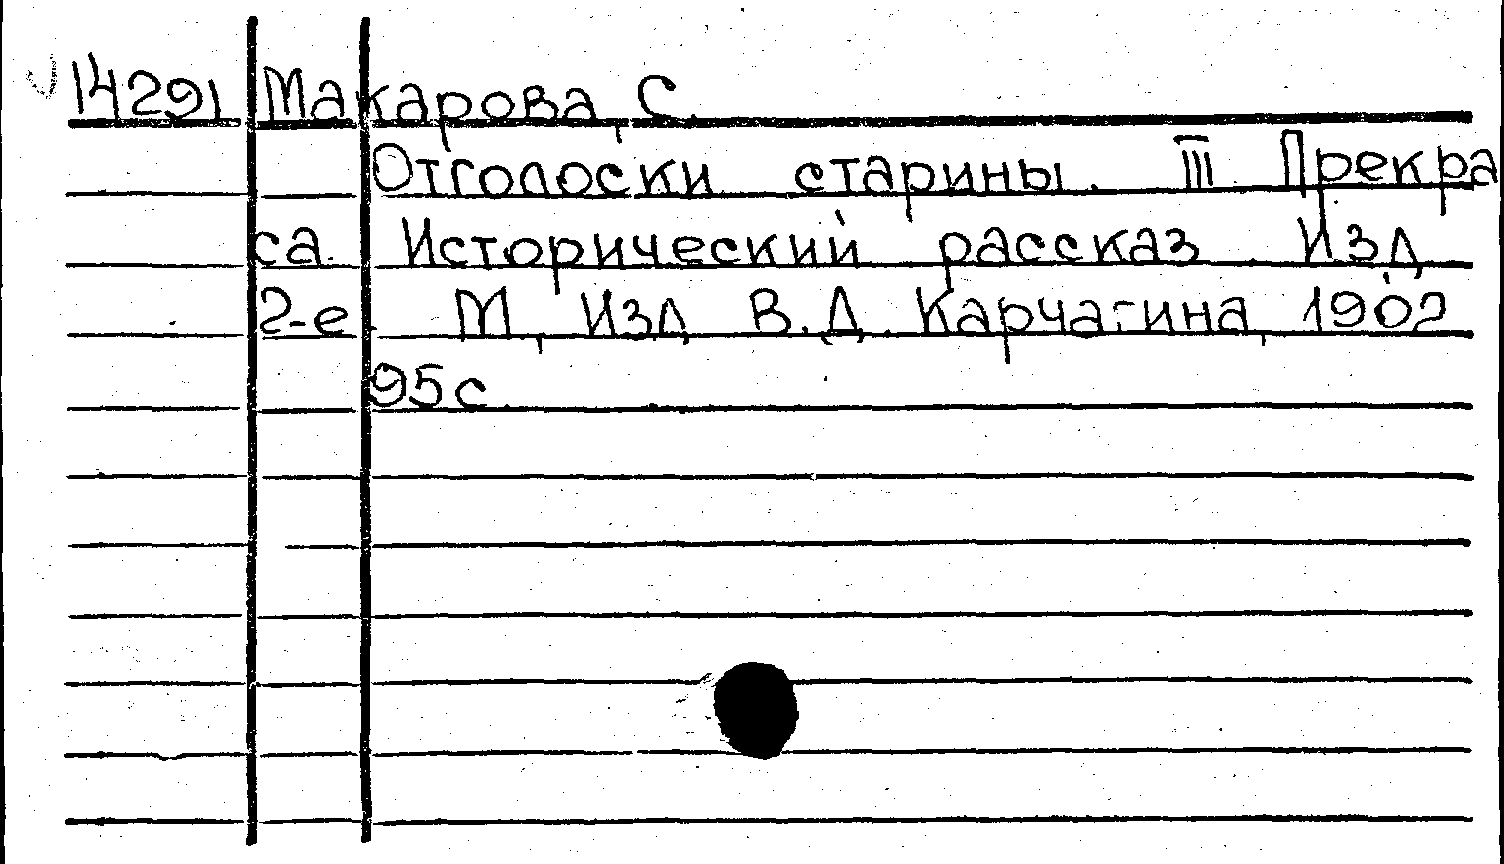 14291 Макарова, С.
Отголоски старины. III Прекра
са. Исторический рассказ. Изд
2-е. М, Изд В.Д. Карчагина, 1902
95 с.